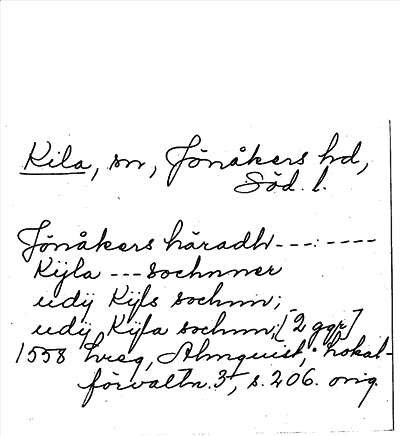 Kila, sn, Jönåkers hd,
Söd. l.
Jönåkers häradh --- : ----
Kijla --- sochnner
udij Kijls sochnn;
udij Kijla sochnn; [2 ggr]
1558 Lreg, Almquist, Lokal-
förvaltn. 3, s. 206. orig.